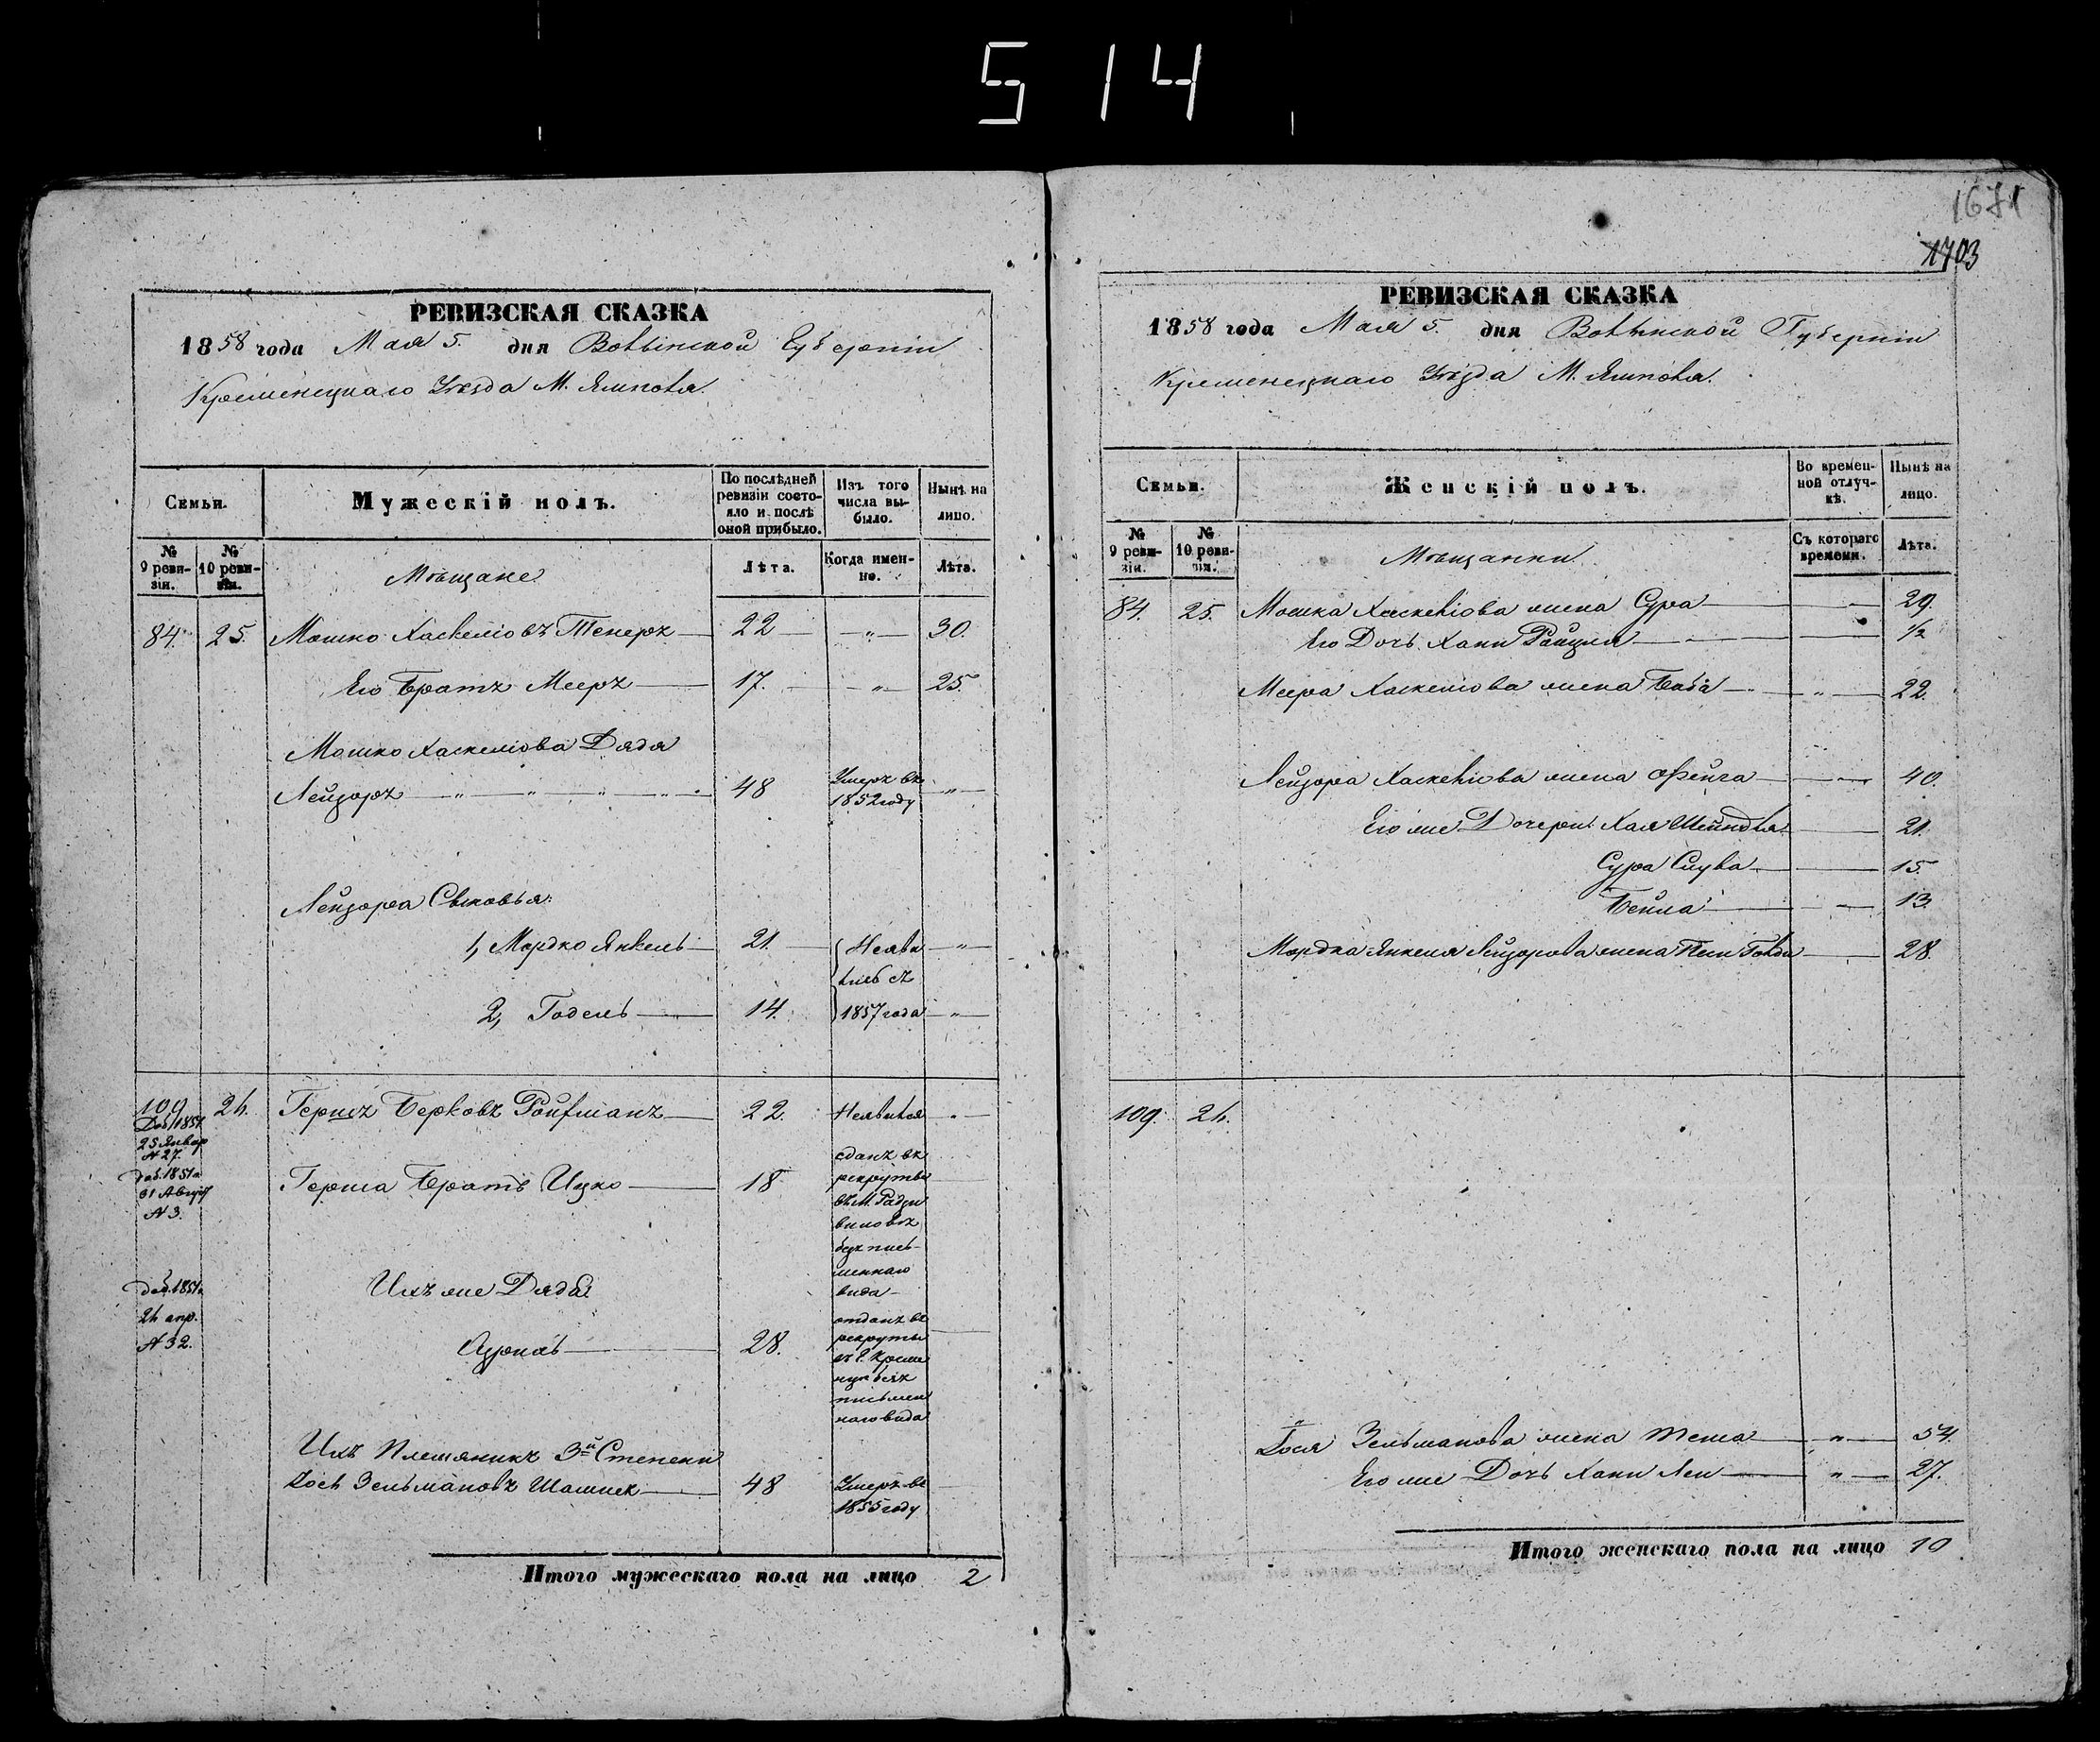 514
1671
1703
РЕВИЗСКАЯ СКАЗКА
1858 года Мая 5. дня Волынской Губерніи
Кременецкаго Уѣзда М. Ямполя.
Семьи.
Мужескій полъ.
По послѣдней ревизіи состояло и послѣ оной прибыло.
Изъ того числа выбыло.
Нынѣ на лицо.
№ 9 ревизіи.
№ 10 ревизіи.
Мѣщане
Лѣта.
Когда именно.
Лѣта.
84. 25. Мошко Хаскеліовъ 22 — „ — 30.
Его Братъ Мееръ 17. — „ — 25.
Мошко Хаскеліова Дядя
Лейзоръ — „ — „ — „ — „ 48 Умеръ въ 1852 году — „ —
Лейзора Сыновья:
1, Мордко Янкель 21. Неяви — „
лись съ
2, Годель 14. 1857 года — „ —
109 24. Гершъ Берковъ Ройфманъ 22. Неявился
Доб. 1851
25 Январ
№ 27.
доб. 1851 г.
31 Август
№ 3.
Герша Братъ Ицко 18 сданъ въ
рекруты
въ М. Радзи
виловѣ
безъ пись-
меннаго
вида
доб. 1851 г.
24 апр.
№ 32.
Ихъ же Дядя
28. отданъ въ
рекруты
въ Г. Креме
нцѣ безъ
письмен
наго вида
Ихъ Племяникъ 3й Степени
Іось Зельмановъ 48 Умеръ въ
1855 году
Итого мужескаго пола на лицо 2
РЕВИЗСКАЯ СКАЗКА
1858 года Мая 5. дня Волынской Губерніи
Кременецкаго Уѣзда М. Ямполя.
Семьи.
Женскій полъ.
Во временной отлучкѣ.
Нынѣ на лицо.
№ 9 ревизіи.
№ 10 ревизіи.
Мѣщанки
Съ котораго времени.
Лѣта.
84. 25. Мошка Хаскеліова жена Сура 29.
Его Дочь Хани Райцля 1/2
Меера Хаскеліова жена Баба — „ — 22.
Лейзора Хаскеліова жена Фейга 40.
Его же Дочери Хая Шейндля 21.
Сура Слува 15.
Бейла 13.
Мордка Янкеля Лейзорова жена 28.
109. 24.
Іося Зельманова жена — „ — 54.
Его же Дочь Хани Леи — „ — 27.
Итого женскаго пола на лицо 10